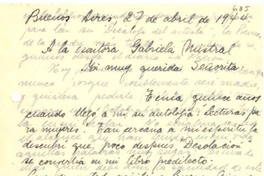 685
Buenos Aires, 27 de abril de 1944
A la escritora Gabriela Mistral
Mi muy querida Señorita:
Tenía quince años
cuando llegó a mí su antología: Lecturas pa-
ra mujeres. Tan cercana a mi espíritu la
descubrí que, poco después Desolación
se convertía en mi libro predilecto: